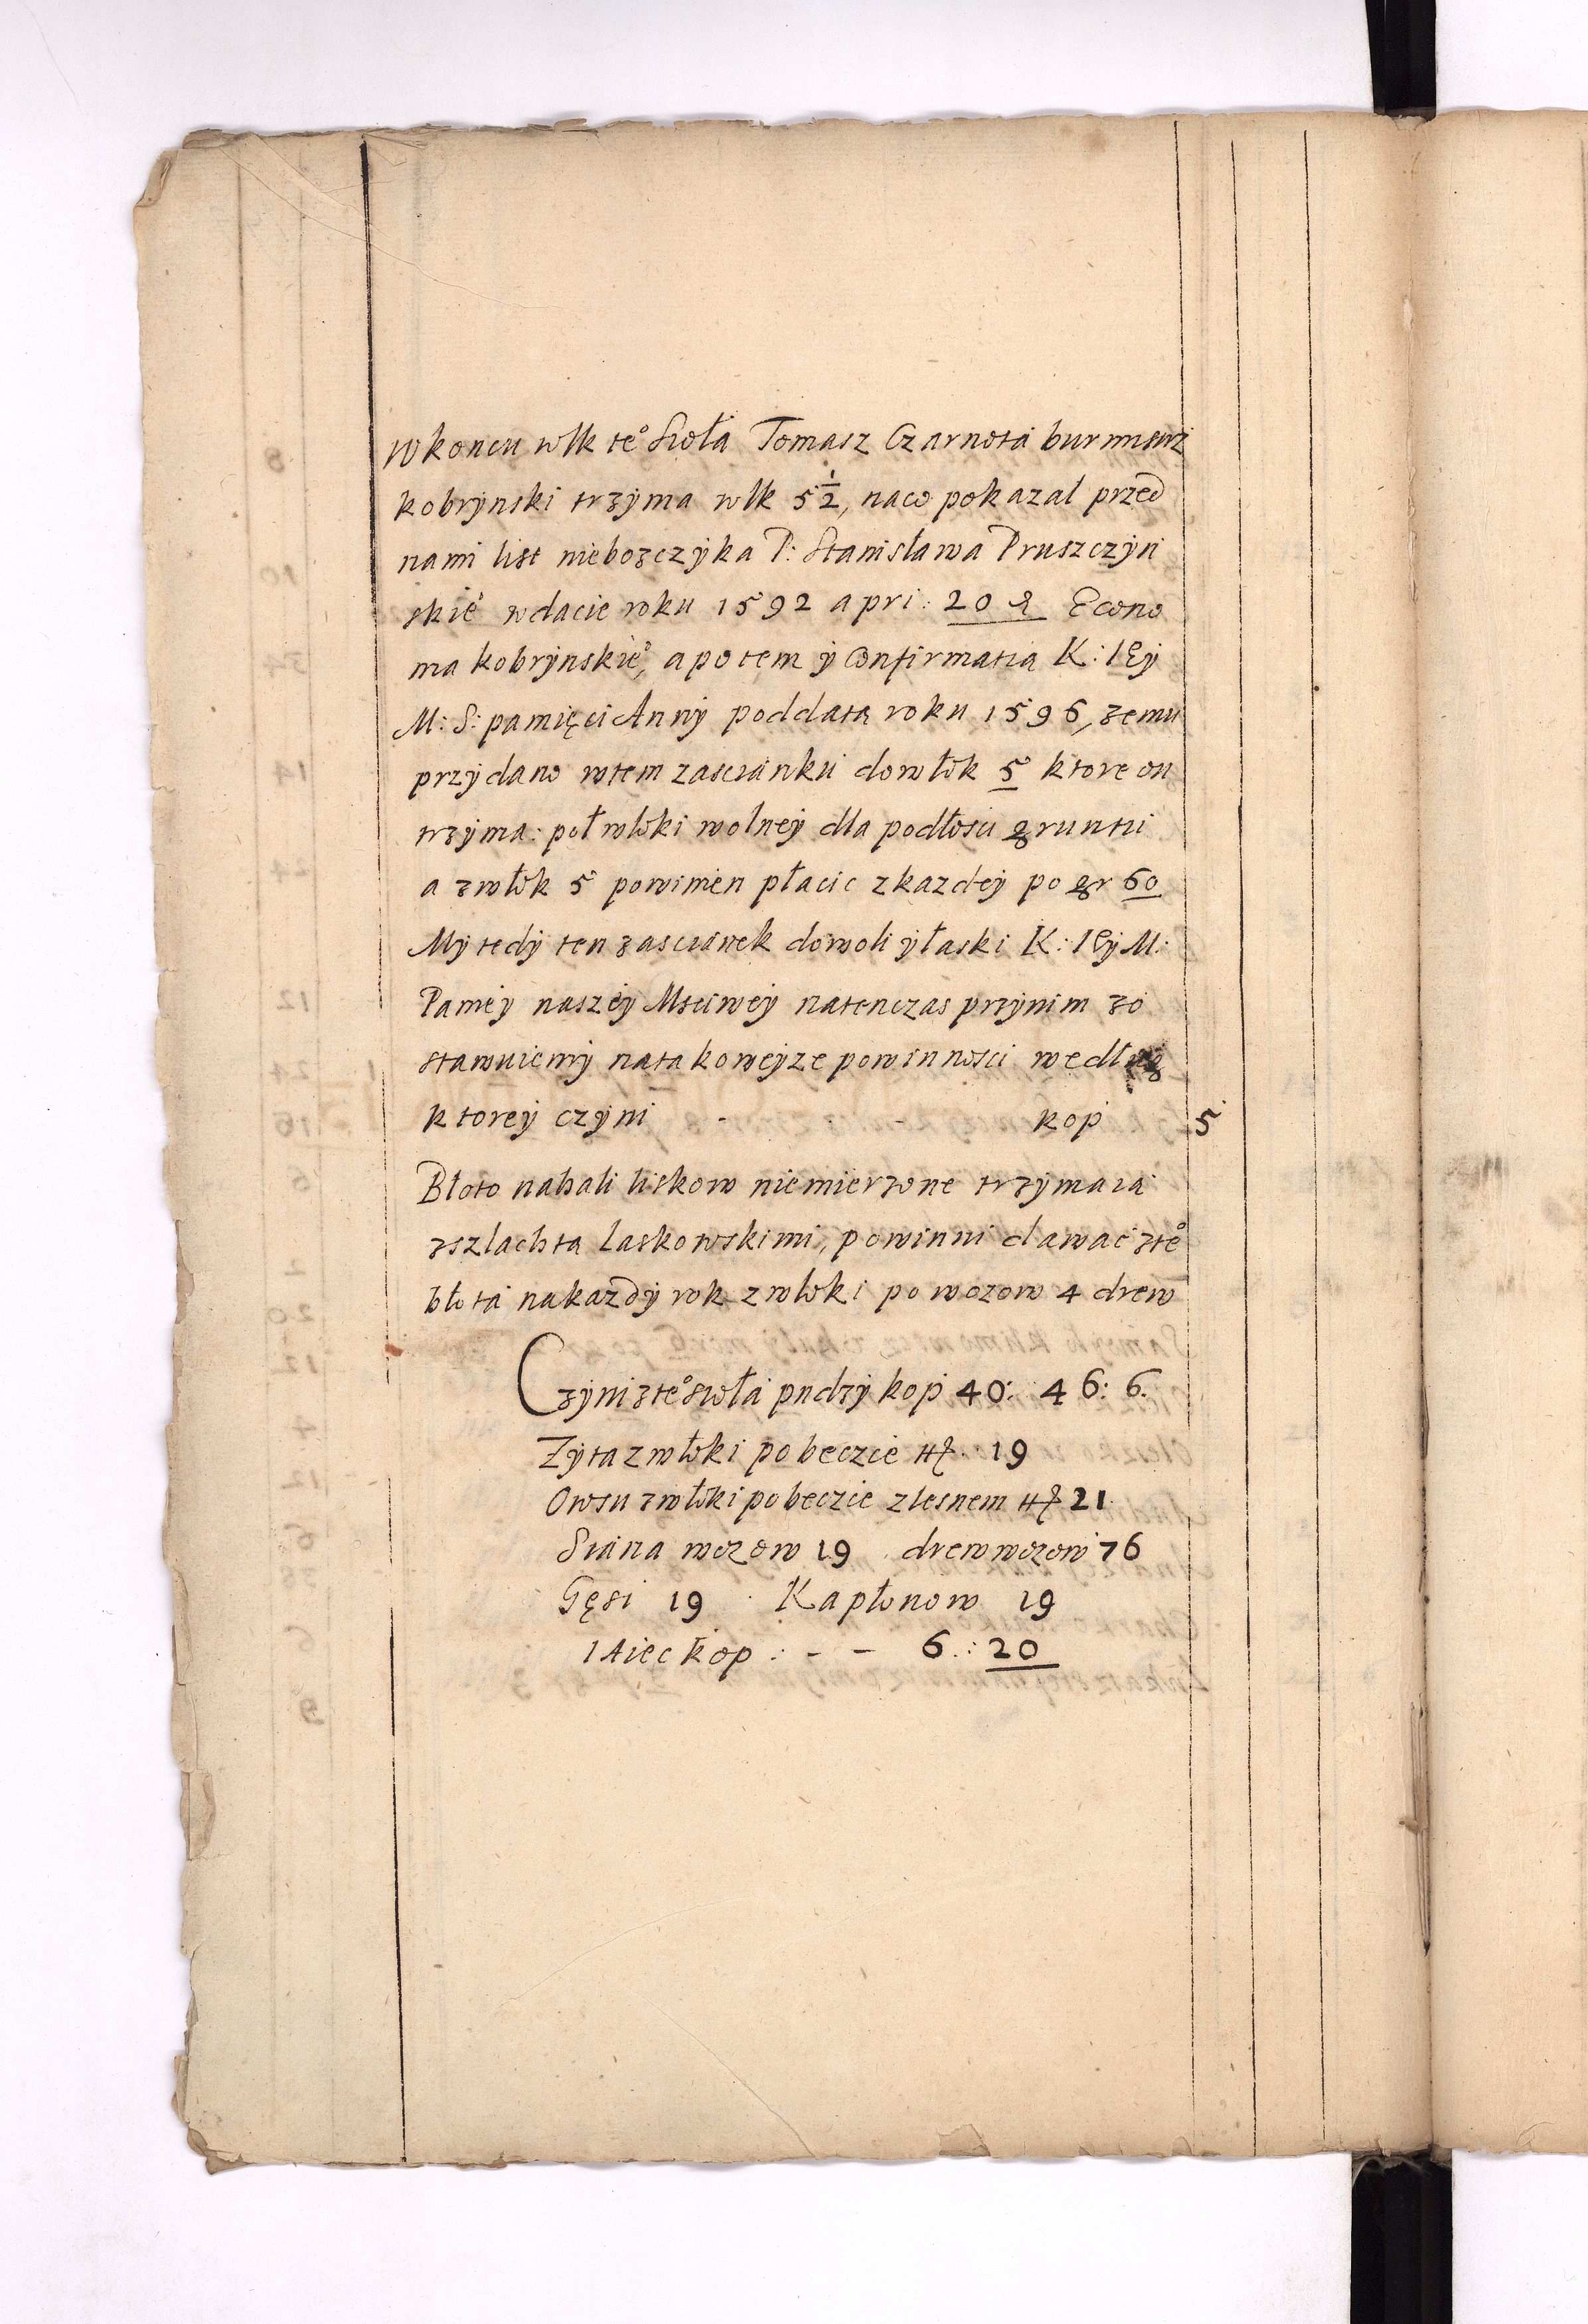 W koncu wlk te° Sioła Tomasz Czarnota burmistrz
kobrynski trzyma wlk 5½, naco pokazal przed
nami list nieboszczyka P: Stanisława Pruszczyn
skie° w dacie roku 1592 apri: 20 Econo
ma kobrynskie°, a potem y Confirmatią K: IEy
M: S: pamięci Anny pod datą roku 1596, zemu
przydano w tem zascianku do włok 5 ktore on
trzyma: poł wloki wolney dla podłosci gruntu
a z włok 5 powinien płacic z kazdey po gr 60
My tedy ten zascianek do woli y łaski K: IEy M:
Paniey naszey Msciwey natenczas przy nim zo
stawuiemy na takoweyze powinnosci według
ktorey czyni - - kop 5
Błoto na hali liskow niemierzone trzymaią
z szlachtą Laskowskimi, powinni dawać z te°
błota na kazdy rok z wloki po wozow 4 drew
Czyni z te° sioła pndzy kop 40: 46: 6.
Zyta z włoki po beczcie 19
Owsu z włoki po beczcie z lesnem 21
Siana wozow 19 drew wozow 76
Gęsi 19 Kapłonow 19
IAiec kop: - - 6.: 20